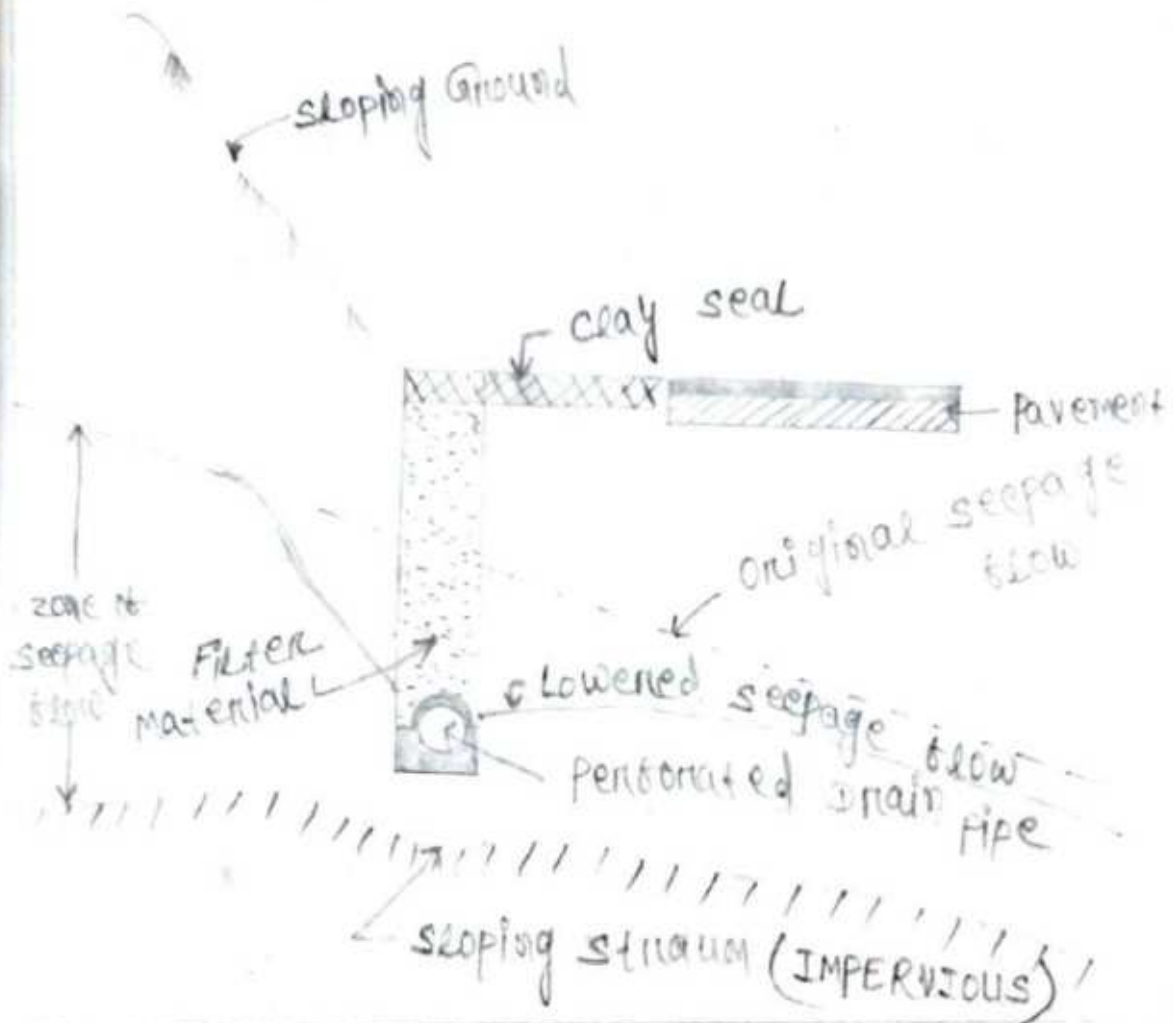 Sloping Ground
Clay seal
Pavement
Original seepage
flow
zone of
seepage
flow
Filter
Material
Lowered seepage flow
Perforated Drain
Pipe
Sloping straum (IMPERVIOUS)